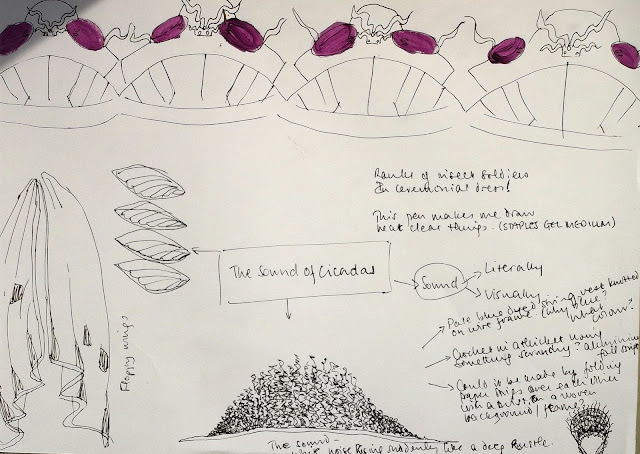 Ranks of insect soldiers
in ceremonial dress!
This pen makes me draw
neat clear things. (STAPLES GEL MEDIUM)
The Sound of Cicadas
Sound
Literally
Visually
Pale blue dyed string vest knitted
on wire frame (why blue?
what colour?
Crochet in a thicket using
something scratchy? aluminium
foil strips
Could it be made by folding
paper strips over each other
with a twist, on a woven
background / frame?
Floppy wings
The sound -
white noise rising suddenly like a deep rustle.